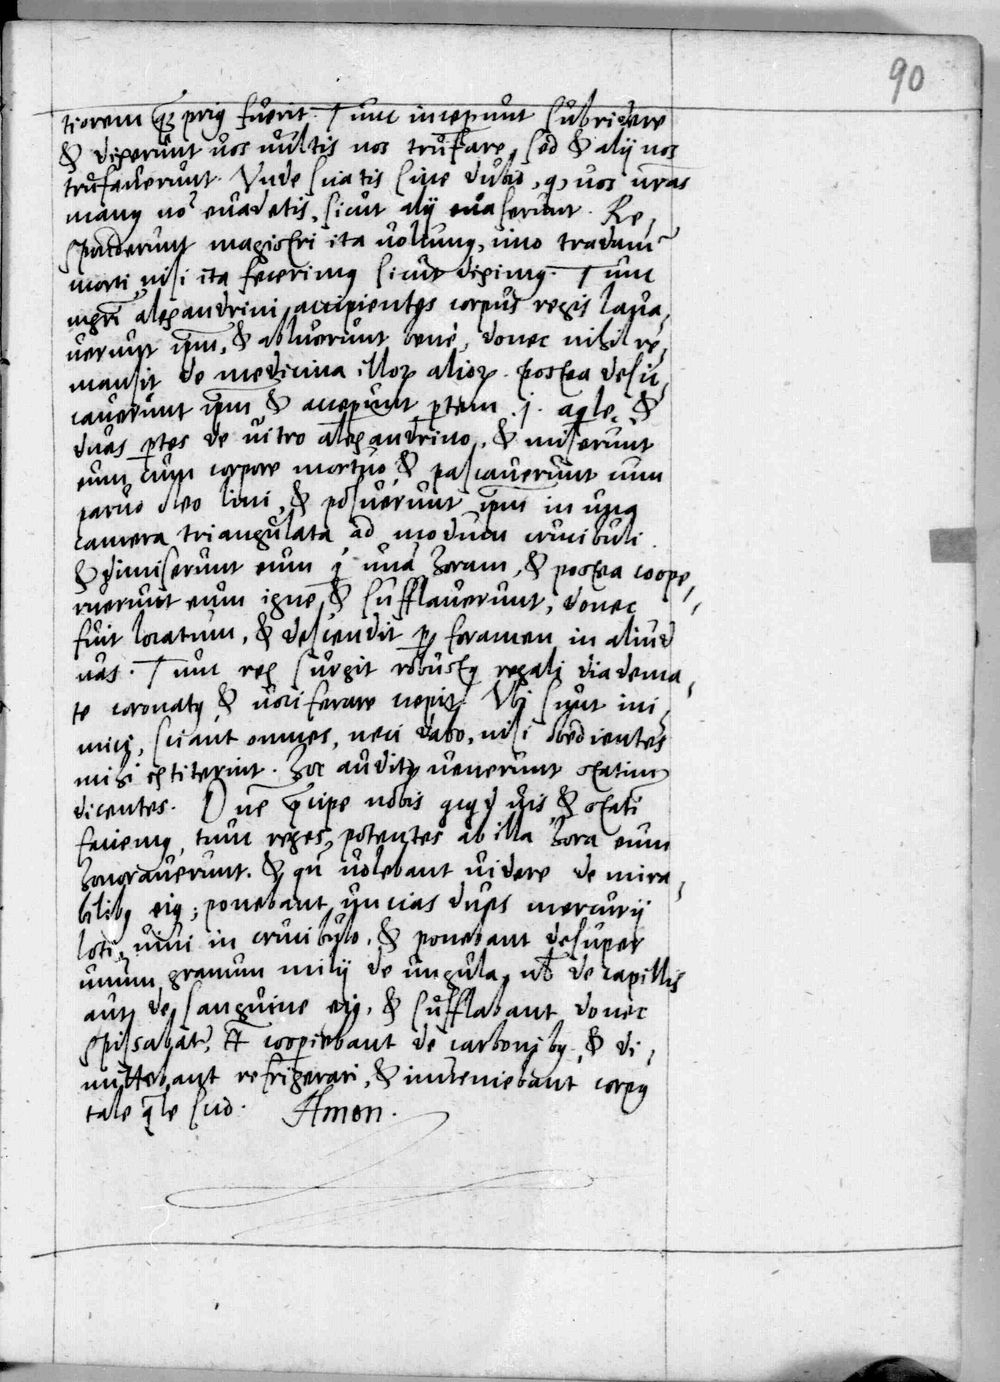 90
tiorem q̃ prius fuerit. Tunc inceperunt subridere
& dixerunt vos vultis nos trufare, sed & alij nos
trufaverunt. Vnde sciatis sine dubio, q̃ vos vr̃as
manus nõ evadetis, sicut alij evaserunt. Re,
sponderunt magistri ita volumus, imo tradamur
morti, nisi ita fecerimus sicut diximus. Tunc
mgr̃i alexandrini accipientes corpus regis lava,
verunt ip̃m, & abluerunt bene, donec nihil re,
mansit de medicina illor̃ alior̃. postea desic,
caverunt ip̃m & acceperunt partem .j. aq̃le, &
duas partes de vitro alexandrino, & miserunt
eum cum corpore mortuo, & pascaverunt cum
parvo oleo lini, & posuerunt ip̃m in una
camera triangulata ad modum crucibuli.
& dimiserunt eum q̃ una horam, & postea coope,,
ruerunt eum igne & sufflaverunt, donec
fuit locatum, & descendit per foramen in aliud
vas. Tunc rex surgit robustus regali diadema,
te coronatus & vociferare cepit. Vbi sunt ini,
mici, sciant omnes, neci dabo, nisi obedientes
mihi extiterint. hoc auditus venerunt statim
dicentes. Dñe p̃cipe nobis quicquid vis & stati
faciemus, tum reges, potentes ab illa hora eum
honoraverunt. & qñ volebant videre de mira,
bilibus eius; ponebant uncias duas mercurij
loti, vivi in crucibulo, & ponebant desuper
unum granum milij de ungula, vel de capillis
aut de sanguine eius, & sufflabant donec
spissabat̃. Et cooperiebant de carbonibus & di,
mittebant refrigerari, & inveniebant corpus
tale q̃le scio. Amen.